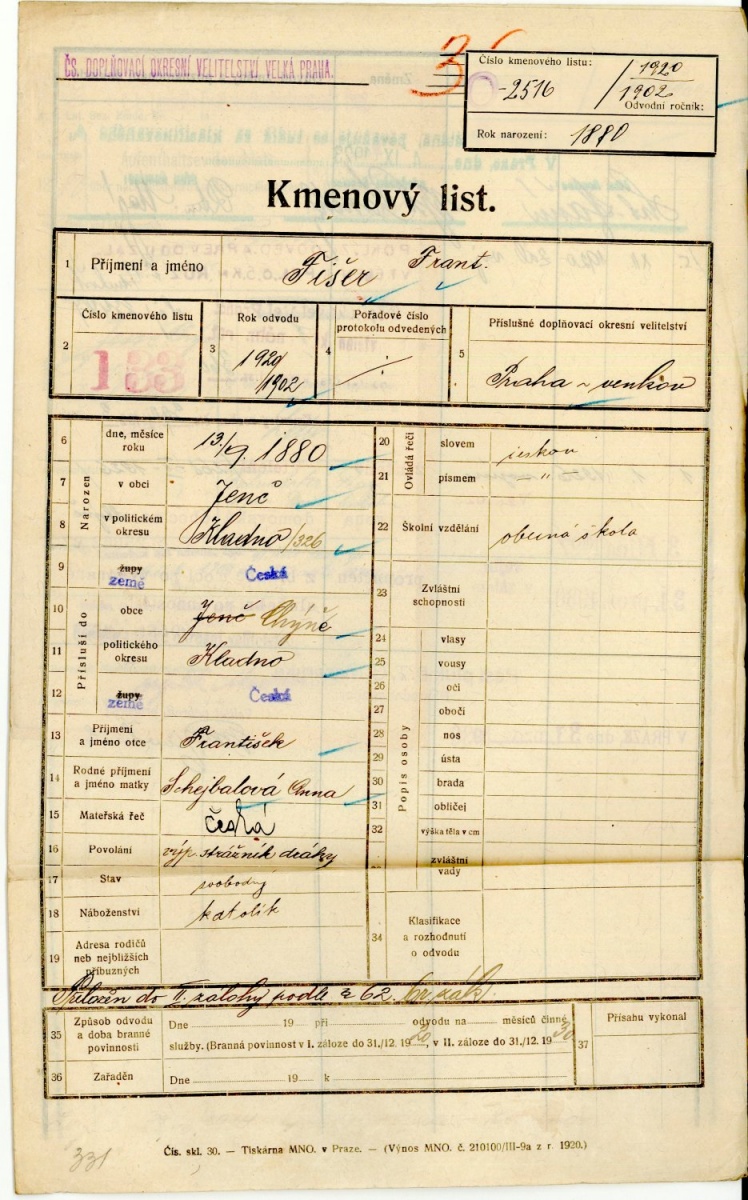 ČS. DOPLŇOVACÍ OKRESNÍ VELITELSTVÍ VELKÁ PRAHA.
Číslo kmenového listu:
2516 / 1920 1902
Odvodní ročník:
Rok narození: 1880
Kmenový list.
1 Příjmení a jméno Fišer Frant.
2 Číslo kmenového listu 133
3 Rok odvodu 1920/1902
4 Pořadové číslo protokolu odvedených
5 Příslušné doplňovací okresní velitelství Praha - venkov
Narozen
6 dne, měsíce roku 1880
7 v obci Jenč
8 v politickém okresu Kladno /326
9 župy země Česká
Přísluší do
10 obce Jenč Chýně
11 politického okresu Kladno
12 župy země Česká
13 Příjmení a jméno otce František
14 Rodné příjmení a jméno matky Schejbalová Anna
15 Mateřská řeč česká
16 Povolání výp. strážník dráhy
17 Stav svobodný
18 Náboženství katolík
19 Adresa rodičů neb nejbližších příbuzných
Ovládá řeči
20 slovem českou
21 písmem — " —
22 Školní vzdělání obecná škola
23 Zvláštní schopnosti
Popis osoby
24 vlasy
25 vousy
26 oči
27 obočí
28 nos
29 ústa
30 brada
31 obličej
32 výška těla v cm
zvláštní vady
34 Klasifikace a rozhodnutí o odvodu
Přeložen do II. zálohy podle § 62. br. zák.
35 Způsob odvodu a doba branné povinnosti
Dne 19 při odvodu na měsíců činné
služby. (Branná povinnost v I. záloze do 31./12. 1920, v II. záloze do 31./12. 1930
36 Zařaděn Dne 19 k
37 Přísahu vykonal
331
Čís. skl. 30. — Tiskárna MNO. v Praze. — (Výnos MNO. č. 210100/III-9a z r. 1920.)